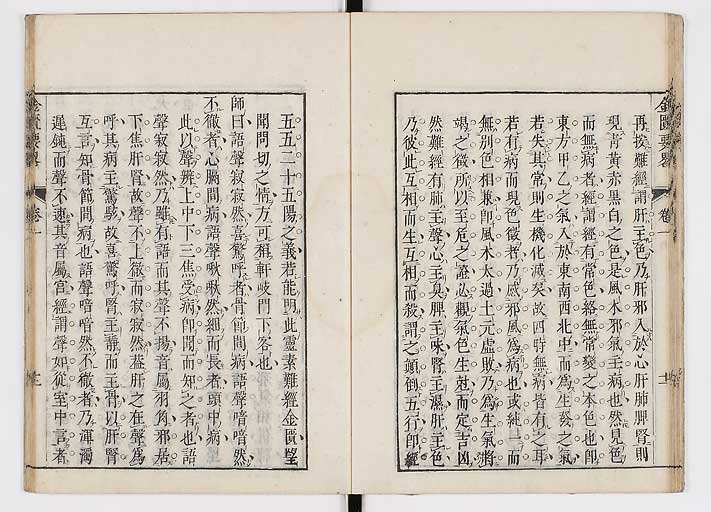 再按難經謂肝主色乃肝邪入於心肝肺脾腎則
現靑黃赤黑白之色是風木邪氣主病也然見色
而無病者經謂經有常色絡無常變之本色也卽
東方甲乙之氣入於東南西北中而爲生發之氣
若失其常則生機化滅矣故四時無病皆有之耳
若有病而現色徵者乃感邪風爲病也或純一而
無別色相兼卽風木太過土元虛敗乃爲生氣將
竭之徵所以至危之證必觀氣色生尅而定吉凶
然難經有肺主聲心主臭脾主味腎主濕肝主色
乃彼此互相而生互相而殺謂之顛倒五行卽經
五五二十五陽之義若能明此靈素難經金匱望
聞問切之情方可稱軒岐門下客也
師曰語聲寂寂然喜驚呼者骨節間病語聲喑喑然
不徹者心膈間病語聲啾啾然細而長者頭中病
此以聲辨上中下三焦受病卽聞而知之者也語
聲寂寂然乃雖有語而其聲不揚音屬羽角邪居
下焦肝腎故聲不上徵而寂寂然蓋肝之在聲爲
呼其病主驚駭故喜驚呼腎主骨以肝腎
互言知骨節間病也語聲喑喑然不徹者乃渾濁
遲鈍而聲不速其音屬宮經謂聲如從室中言者
金匱要畧
卷一